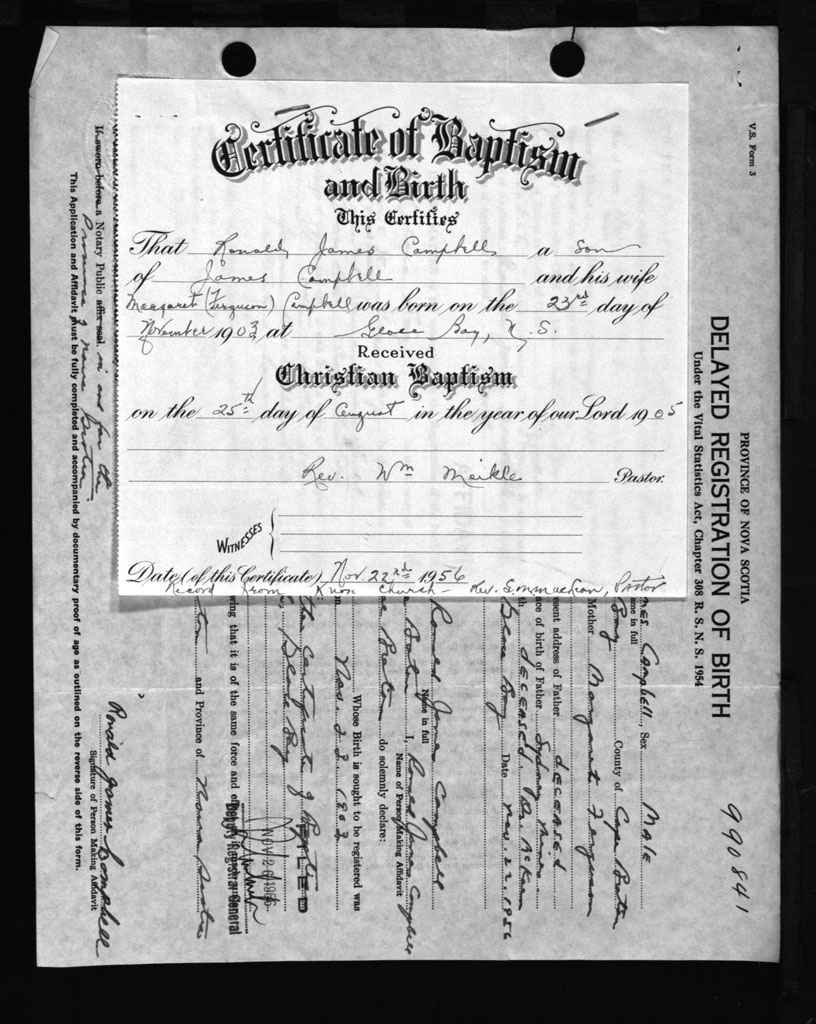 Certificate of Baptism
and Birth
This Certifies
That Ronald James Campbell a son
of James Campbell and his wife
Margaret (Ferguson) Campbell was born on the 23rd day of
November 1903 at Glace Bay, N.S.
Received
Christian Baptism
on the 25th day of August in the year of our Lord 1905
Rev. Wm Meikle Pastor.
WITNESSES
Date (of this Certificate) Nov. 22nd 1956
Record from Knox Church - Rev. Pastor
V.S. Form 3
PROVINCE OF NOVA SCOTIA
DELAYED REGISTRATION OF BIRTH
Under the Vital Statistics Act, Chapter 308 R. S. N. S. 1954
990841
mes Campbell, Sex Male
ame in full
Bay County of Cape Breton
Mother Margaret Ferguson
esent address of Father deceased
ace of birth of Father Sydney Mines
deceased Dr. McKean
Glace Bay Date Nov. 22, 1956
Ronald James Campbell
Name in full
Breton I, Ronald James Campbell
Name of Person Making Affidavit
Breton do solemnly declare:
Whose Birth is sought to be registered was
on Nov. 23, 1903
Certificate of Baptism
Glace Bay
FILED
NOV 26 1956
Deputy Registrar General
wing that it is of the same force and
and Province of Nova Scotia
Ronald James Campbell
Signature of Person Making Affidavit
If sworn before a Notary Public affix seal in and for the
Province of Nova Scotia
This Application and Affidavit must be fully completed and accompanied by documentary proof of age as outlined on the reverse side of this form.